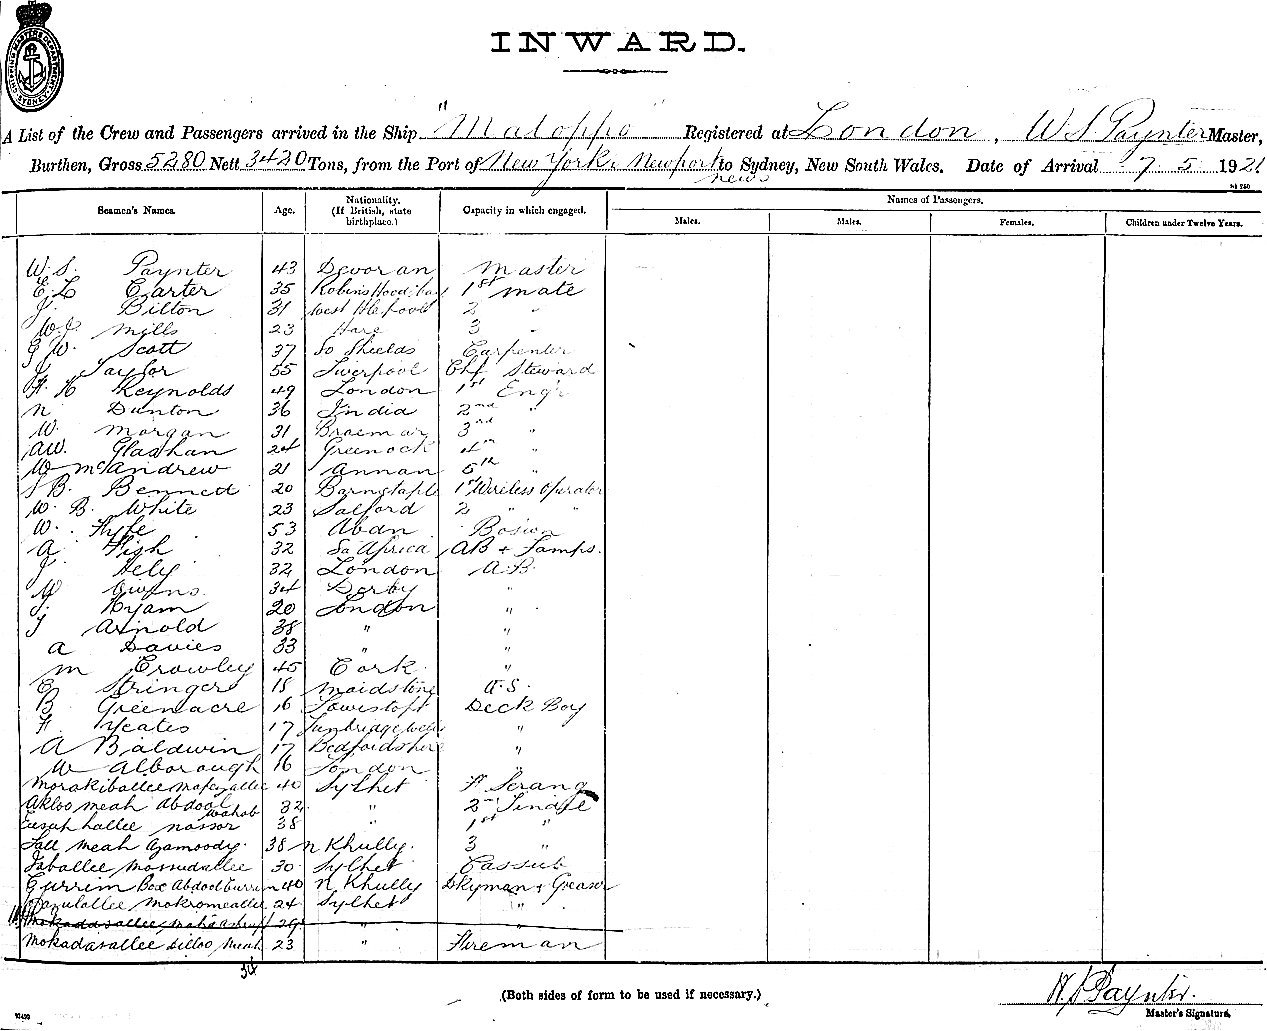 SHIPPING MASTERS DEPARTMENT SYDNEY
INWARD.
A List of the Crew and Passengers arrived in the Ship "Matoppo" Registered at London, W S Paynter Master,
Burthen, Gross 5280 Nett 3420 Tons, from the Port of New York & Newport News to Sydney, New South Wales. Date of Arrival 7 5 1921
Seamen's Names. Age. Nationality. (If British, state birthplace.) Capacity in which engaged. Names of Passengers.
Males. Males. Females. Children under Twelve Years.
W. S. Paynter 43 Devoran Master
E. L Carter 35 Robins Hood, bay 1st mate
J. Bilton 31 West Hlepool 2 "
W. J. Mills 23 3 "
G W. Scott 37 So Shields Carpenter
J Taylor 55 Liverpool Chf Steward
H. Reynolds 49 London 1st Engr
N. Dunton 36 India 2nd "
W. Morgan 31 Braemar 3rd "
AW. Glashan 24 Greenock 4th "
W McAndrew 21 Annan 5th "
J B. Bennett 20 Barnstaple 1st Wireless Operator
W. B. White 23 Salford 2 " "
W. Fyfe 53 Abdn Bosun
A Fish 32 So Africa AB + Lamps.
J. Hely 32 London A.B.
W Owens 34 Derby "
J. Hyam 20 London "
J Arnold 38 " "
A Davies 33 " "
M Crowley 45 Cork "
E Stringer 18 Maidstone O.S.
B Greenacre 16 Lowestoft Deck Boy
H. Yeates 17 Tunbridge Wells "
A Baldwin 17 Bedfordshire "
W Alborough 16 London "
40 Sylhet Serang
Akloo Meah Abdool Wahab 32 " 2nd Tindle
Nassor 38 " 1st "
Lall Meah 38 N Khully. 3 "
30 Sylhet Cassub
Currim Box Abdool Currim 40 N Khully Dkyman & Greaser
Mokromeallee 24 Sylhet "
29 " "
Mokadasallee Meah 23 " Fireman
34
(Both sides of form to be used if necessary.)
W. S Paynter.
Master's Signature.